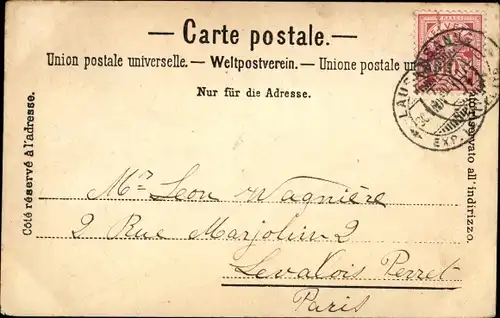 — Carte postale. —
Union postale universelle. — Weltpostverein. — Unione postale
Nur für die Adresse.
Côté réservé à l'adresse.
riservato all'indirizzo.
EXP.
Mr Leon Wagnière
2 Rue Marjolin 2
Levallois Perret
Paris